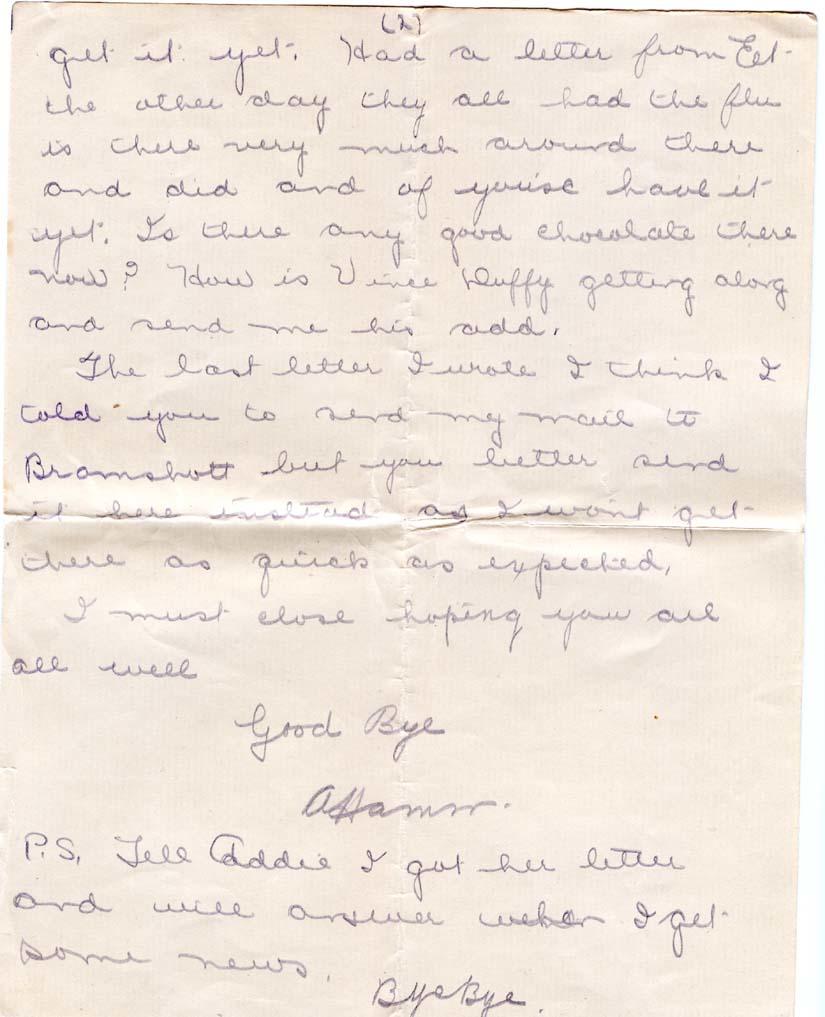 (2)
get it yet. Had a letter from Eet
the other day they all had the flu
is there very much around there
and did and of youise have it
yet. Is there any good chocolate there
now? How is Vince Duffy getting along
and send me his add.
The last letter I wrote I think I
told you to send my mail to
Bramshott but you better send
it here instead as I wont get
there as quick as expected.
I must close hoping you are
all well
Good Bye
P.S. Tell Addie I got her letter
and will answer when I get
some news.
Bye Bye.